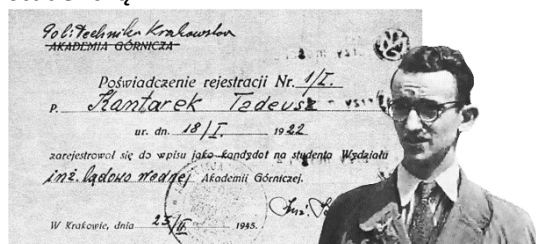 Politechnika Krakowska
AKADEMIA GÓRNICZA
Poświadczenie rejestracji Nr. 1/I.
P. Kantarek Tadeusz
ur. dn. 18/I. 1922
zarejestrował się do wpisu jako kandydat na studenta Wydziału
inż. lądowo wodnej Akademii Górniczej.
W Krakowie, dnia 23/II 1945.